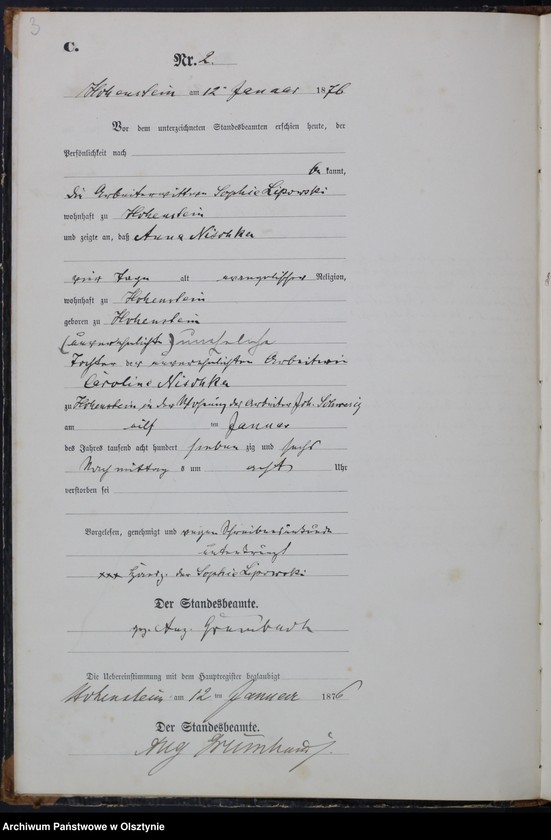 3
C.
Nr. 2.
Hohenstein am 12ten Januar 1876
Vor dem unterzeichneten Standesbeamten erschien heute, der
Persönlichkeit nach
be kannt,
die Arbeiterwittwe Sophie Lipowski
wohnhaft zu Hohenstein
und zeigte an, daß Anna Nischka
vier Tage alt evangelischer Religion,
wohnhaft zu Hohenstein
geboren zu Hohenstein
(unverehelichte) uneheliche
Tochter der unverehelichten Arbeiterin
Caroline Nischka
zu Hohenstein in der Wohnung des Arbeiter Joh.
am eilf ten Januar
des Jahres tausend acht hundert sieben zig und sechs
Nachmittag s um acht Uhr
verstorben sei
Vorgelesen, genehmigt und wegen Schreibensunkunde
unterkreuzt
xxx Handz. der Sophie Lipowski
Der Standesbeamte.
gez. Aug.
Die Uebereinstimmung mit dem Hauptregister beglaubigt
Hohenstein am 12 ten Januar 1876
Der Standesbeamte.
Aug
Archiwum Państwowe w Olsztynie